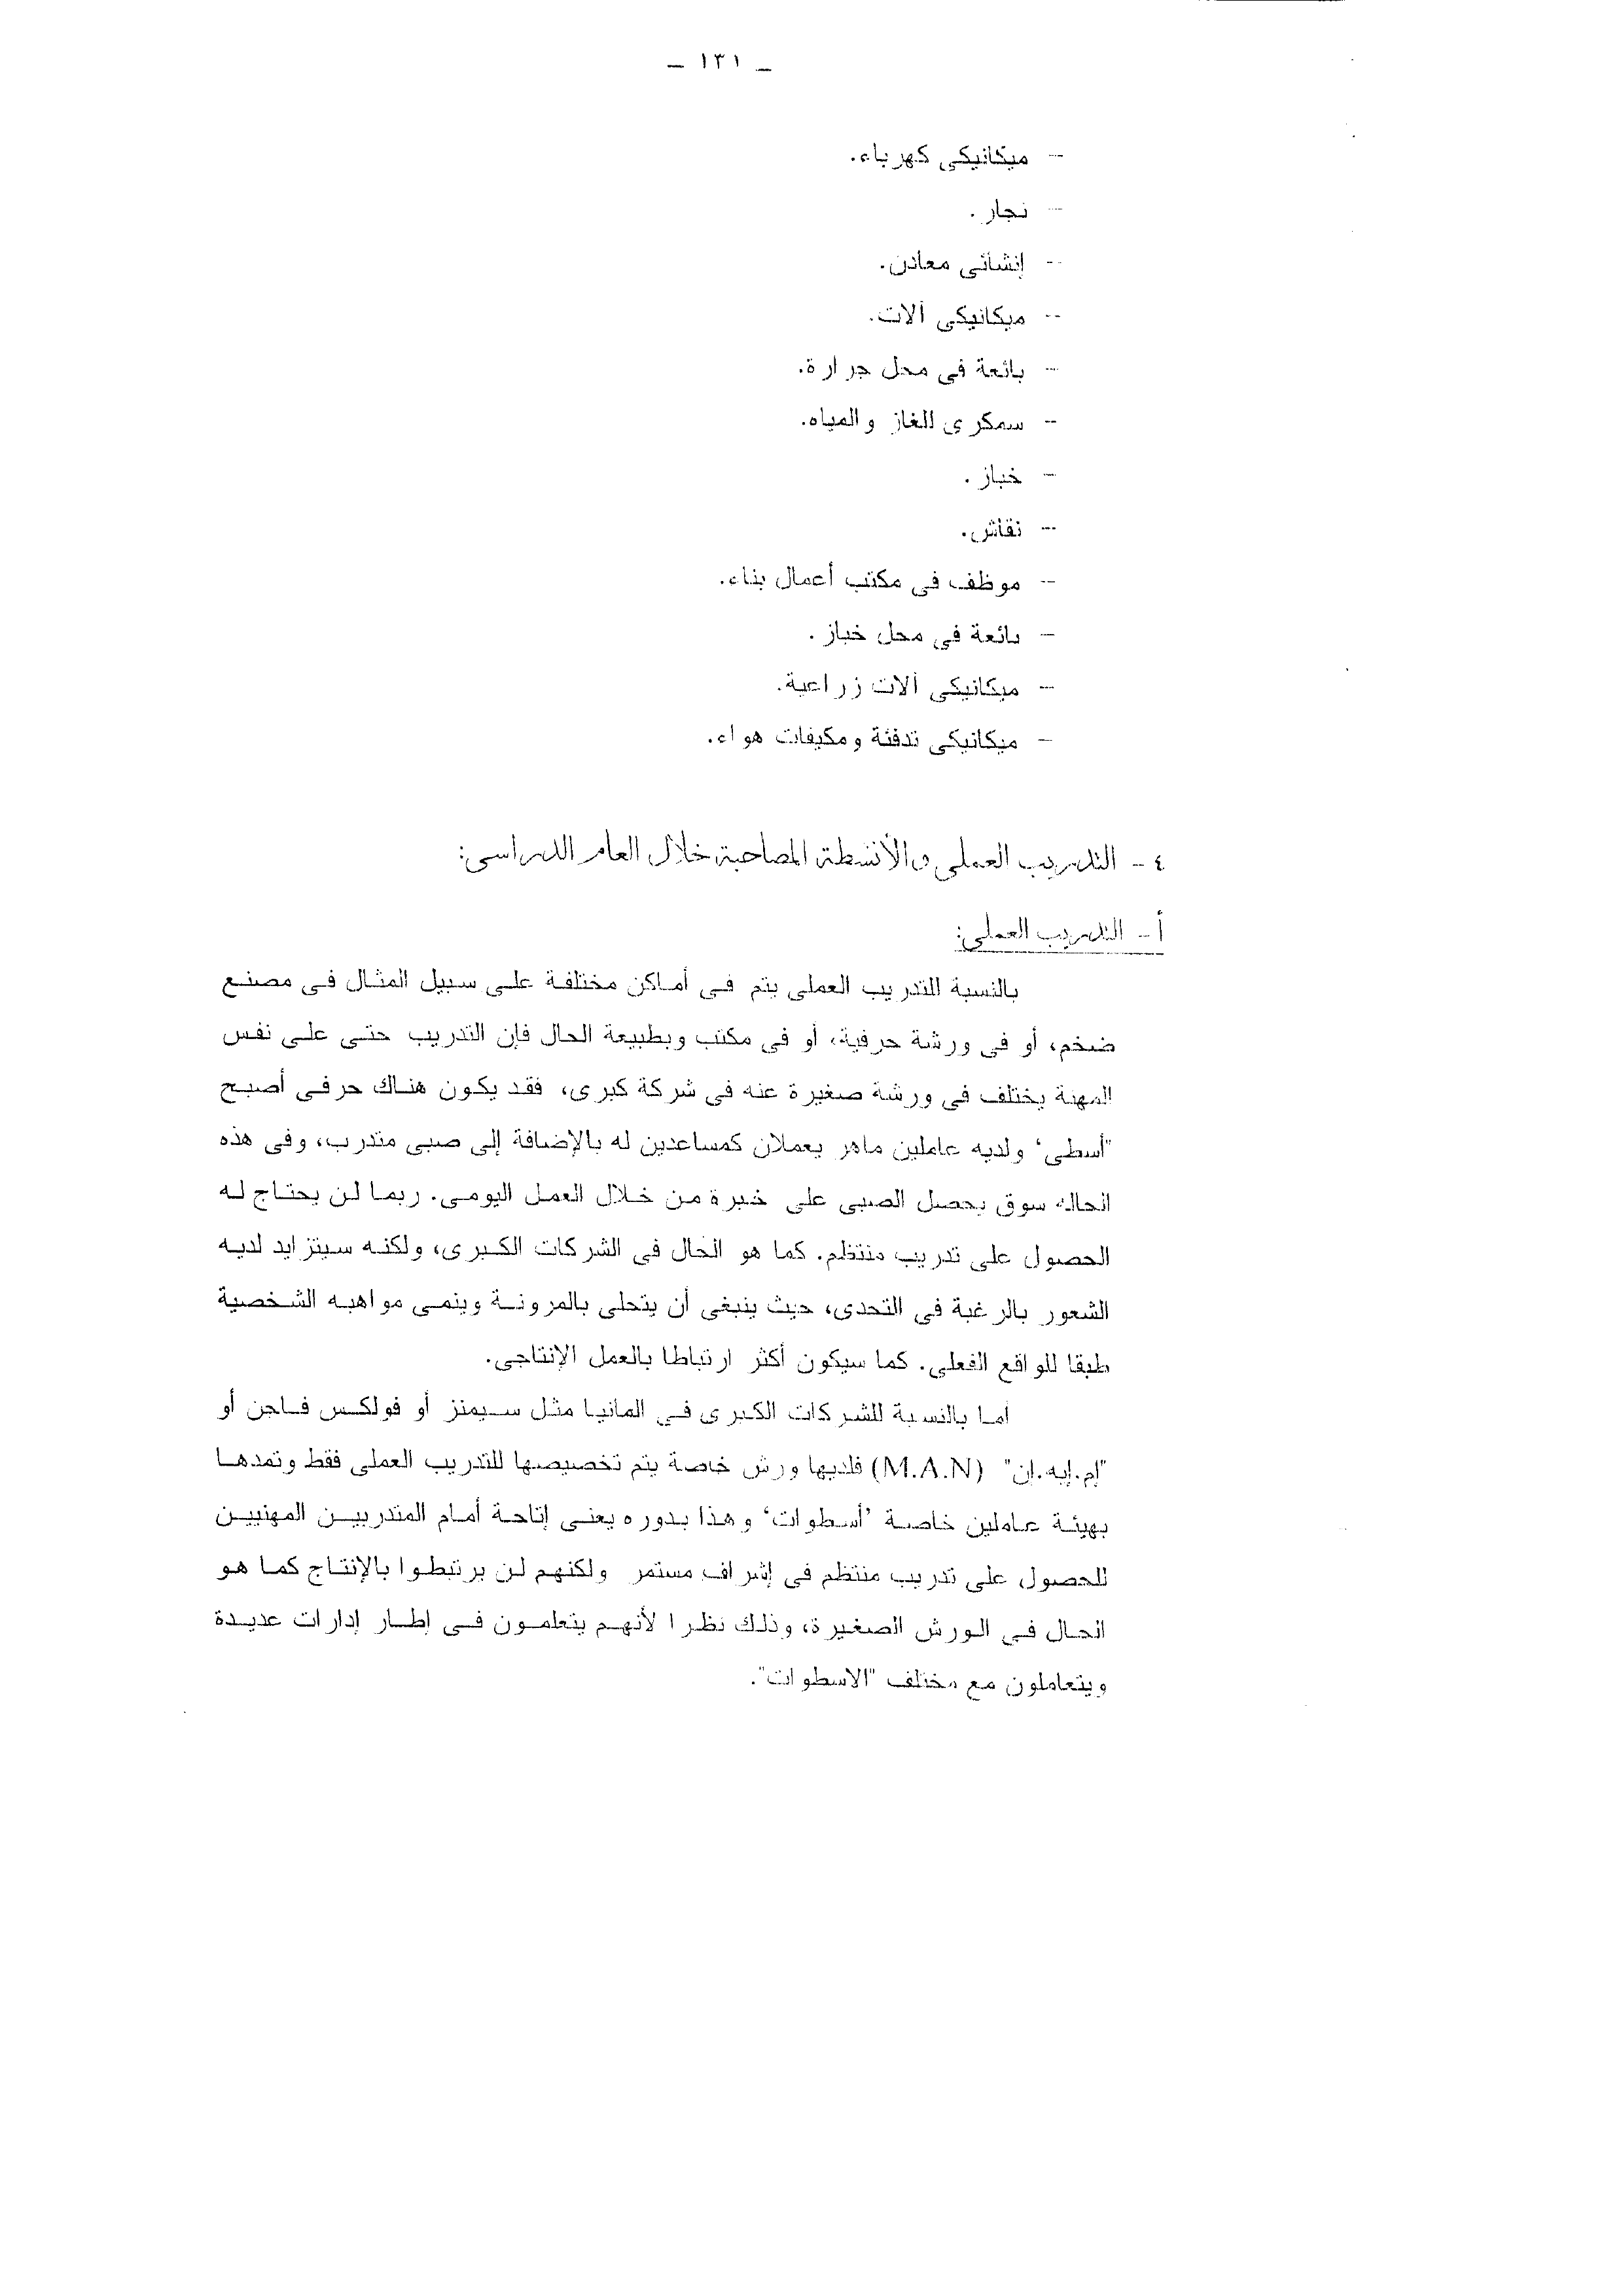 - ١٣١ -
- ميكانيكى كهرباء.
- نجار.
- إنشائى معادن.
- ميكانيكى ألات.
- بائعة فى محل جرارة.
- سمكرى للغاز والمياه.
- خباز.
- نقاش.
- موظف فى مكتب أعمال بناء.
- بائعة فى محل خباز.
- ميكانيكى ألات زراعية.
- ميكانيكى تدفئة ومكيفات هواء.
٤ - التدريب العملى والأنشطة المصاحبة خلال العام الدراسى:
أ - التدريب العملى:
بالنسبة للتدريب العملى يتم فى أماكن مختلفة على سبيل المثال فى مصنع
ضخم، أو فى ورشة حرفية، أو فى مكتب وبطبيعة الحال فإن التدريب حتى على نفس
المهنة يختلف فى ورشة صغيرة عنه فى شركة كبرى، فقد يكون هناك حرفى أصبح
"أسطى" ولديه عاملين ماهر يعملان كمساعدين له بالإضافة إلى صبى متدرب، وفى هذه
الحاله سوق يحصل الصبى على خبرة من خلال العمل اليومى. ربما لن يحتاج له
الحصول على تدريب منتظم. كما هو الحال فى الشركات الكبرى، ولكنه سيتزايد لديه
الشعور بالرغبة فى التحدى، حيث ينبغى أن يتحلى بالمرونة وينمى مواهبه الشخصية
طبقا للواقع الفعلى. كما سيكون أكثر ارتباطا بالعمل الإنتاجى.
أما بالنسبة للشركات الكبرى فى المانيا مثل سيمنز أو فولكس فاجن أو
"إم.إيه.إن" (M.A.N) فلديها ورش خاصة يتم تخصيصها للتدريب العملى فقط وتمدها
بهيئة عاملين خاصة "أسطوات" وهذا بدوره يعنى إتاحة أمام المتدربين المهنيين
للحصول على تدريب منتظم فى إشراف مستمر ولكنهم لن يرتبطوا بالإنتاج كما هو
الحال فى الورش الصغيرة، وذلك نظرا لأنهم يتعلمون فى إطار إدارات عديدة
ويتعاملون مع مختلف "الاسطوات".